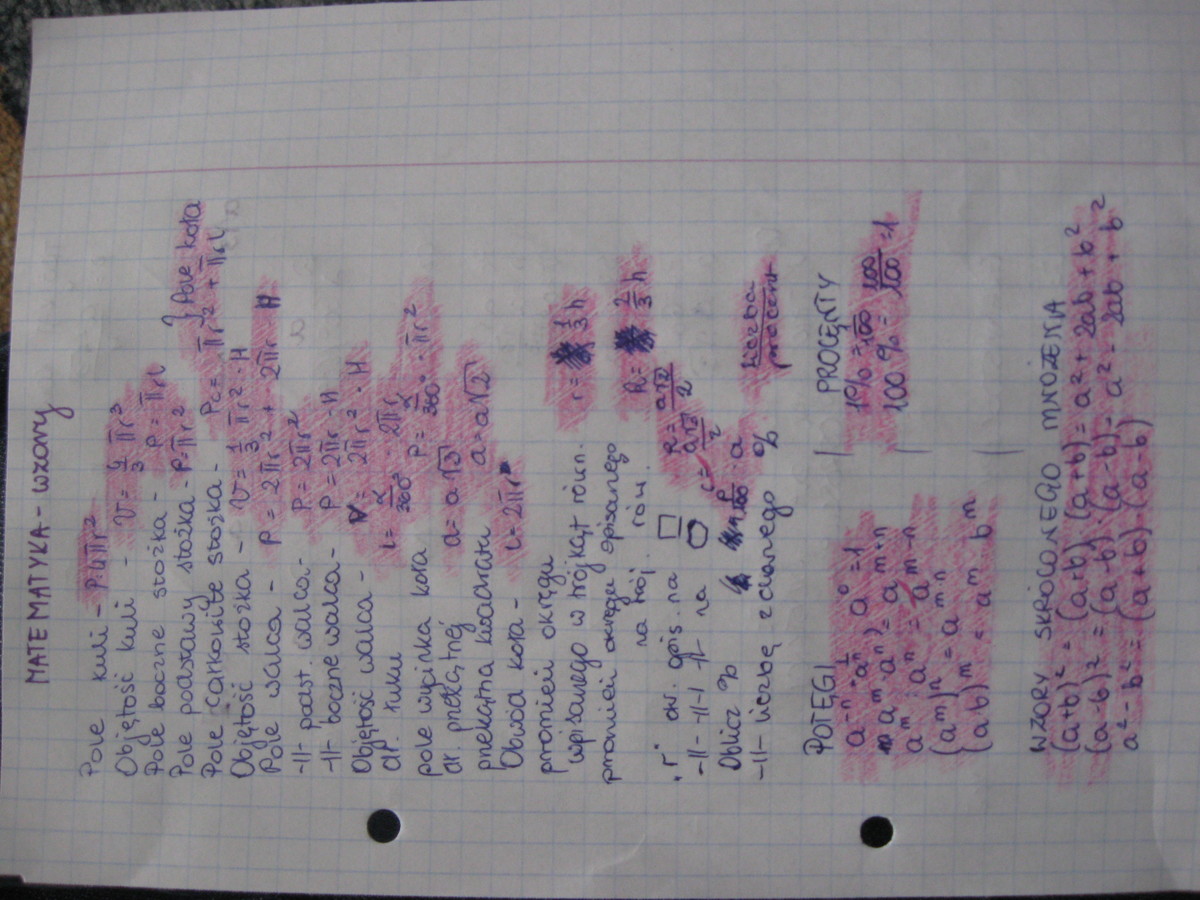 MATEMATYKA - wzory
Pole kuli - P=4πr²
Objętość kuli - V = 4/3 πr³
Pole boczne stożka - P = πrl
Pole podstawy stożka - P=πr² } Pole koła
Pole całkowite stożka - Pc = πr² + πrl
Objętość stożka - V = 1/3 πr² · H
Pole walca - P = 2πr² + 2πr H
-||- podst. walca - P = 2πr²
-||- boczne walca - P = 2πr · H
Objętość walca - V = 2πr² · H
dł. łuku L = α/360° · 2πr
pole wycinka koła P = α/360° · πr²
dł. przekątnej a = a√3
przekątna kwadratu a = a√2
Obwód koła - L = 2πr
promień okręgu
wpisanego w trójkąt równ. r = 1/3 h
promień okręgu opisanego
na trój. rów. R = 2/3 h
"r" okr. opis. na □ R = a√2/2
-||- -||- -||- na a√3/2
Oblicz % p/100 · a
-||- liczbę z danego % liczba/procent
POTĘGI
a⁻ⁿ · 1/aⁿ a⁰ = 1
aᵐ · aⁿ = aᵐ⁺ⁿ
aᵐ : aⁿ = aᵐ⁻ⁿ
(aᵐ)ⁿ = aᵐ·ⁿ
(ab)ᵐ = aᵐ bᵐ
PROCENTY
1% = 1/100
100% = 100/100 = 1
WZORY SKRÓCONEGO MNOŻENIA
(a+b)² = (a+b)·(a+b) = a² + 2ab + b²
(a-b)² = (a-b)·(a-b) = a² - 2ab + b²
a² - b² = (a+b)·(a-b)